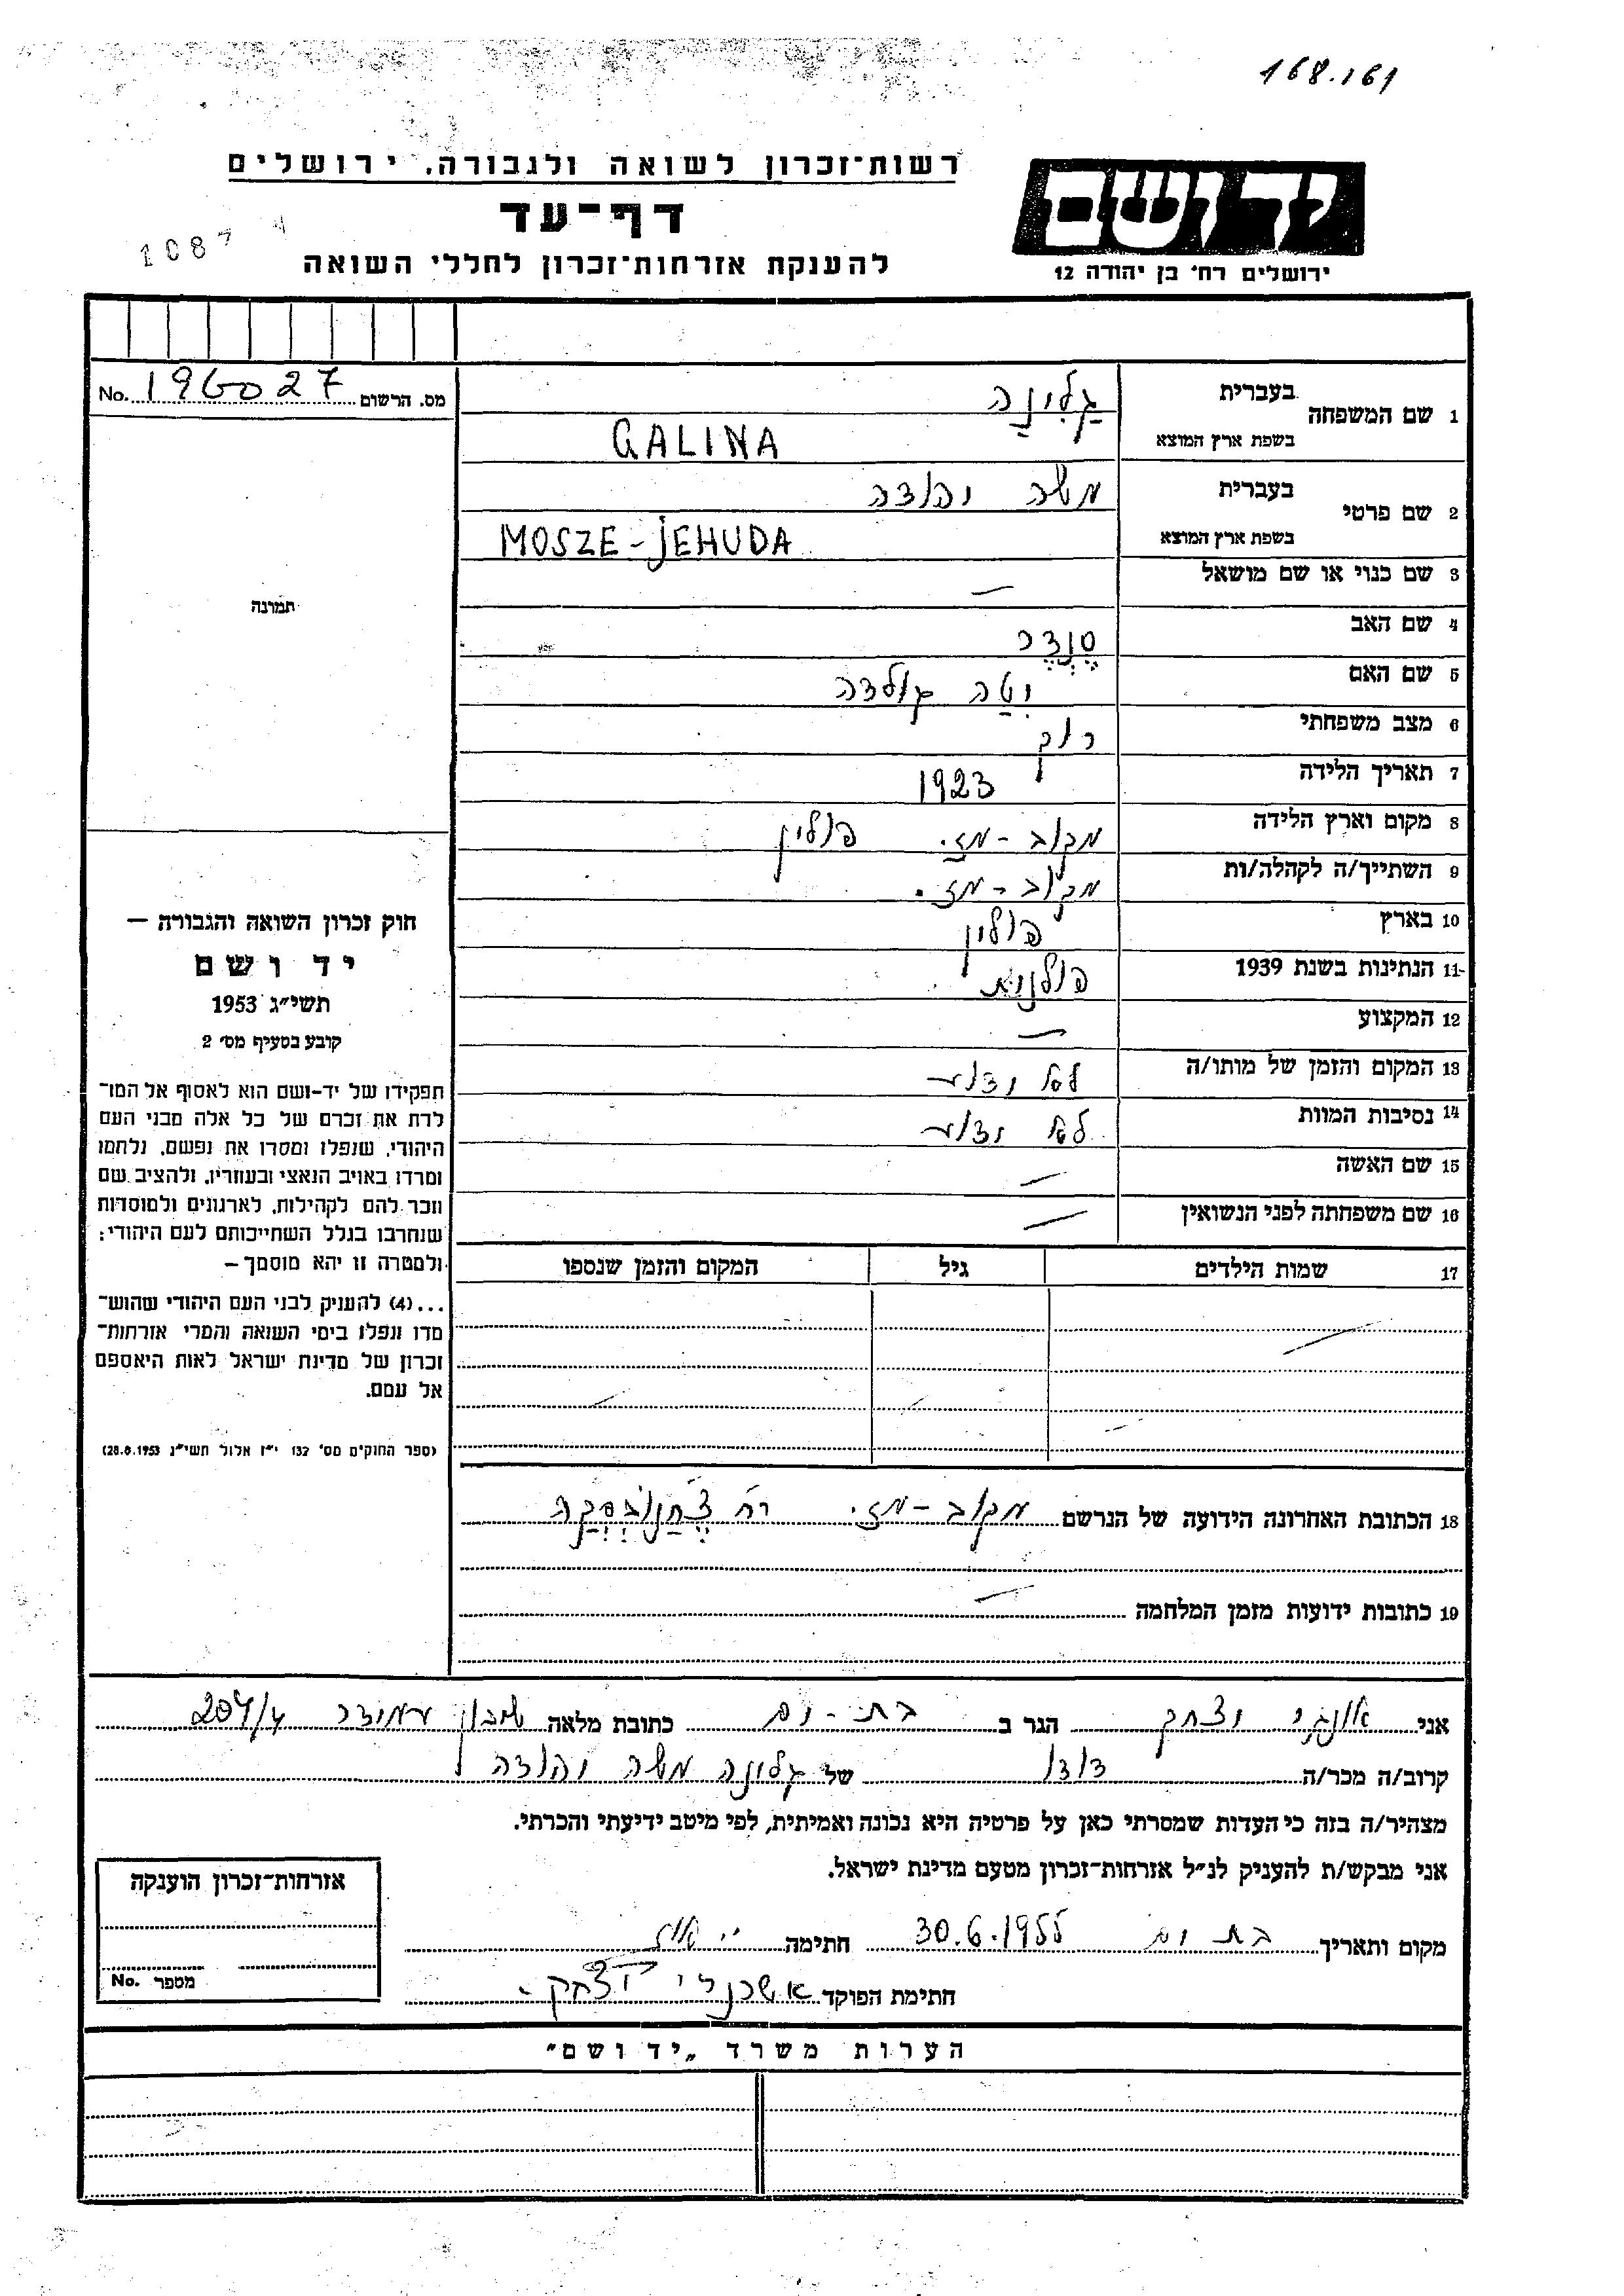 168.161
רשות־זכרון לשואה ולגבורה, ירושלים
ידושם
דף־עד
1087
להענקת אזרחות־זכרון לחללי השואה
ירושלים רח' בן יהודה 12
מס. הרשום 196027 No.
1 שם המשפחה בעברית גַלִינָה
בשפת ארץ המוצא GALINA
2 שם פרטי בעברית משה יהודה
בשפת ארץ המוצא MOSZE-JEHUDA
3 שם כנוי או שם מושאל —
תמונה
4 שם האב סֶנְדֶר
5 שם האם יִטַה גולדה
6 מצב משפחתי רווק
7 תאריך הלידה 1923
8 מקום וארץ הלידה מקוב-מז. פולין
9 השתייך/ה לקהלה/ות מקוב-מז.
10 בארץ פולין
11 הנתינות בשנת 1939 פולנית
12 המקצוע —
13 המקום והזמן של מותו/ה לא ידוע
14 נסיבות המוות לא ידוע
15 שם האשה —
16 שם משפחתה לפני הנשואין —
17 שמות הילדים גיל המקום והזמן שנספו
חוק זכרון השואה והגבורה —
יד ושם
תשי"ג 1953
קובע בסעיף מס' 2
תפקידו של יד-ושם הוא לאסוף אל המו־
לדת את זכרם של כל אלה מבני העם
היהודי, שנפלו ומסרו את נפשם, נלחמו
ומרדו באויב הנאצי ובעוזריו, ולהציב שם
וזכר להם לקהילות, לארגונים ולמוסדות
שנחרבו בגלל השתייכותם לעם היהודי;
ולמטרה זו יהא מוסמך –
...(4) להעניק לבני העם היהודי שהוש־
מדו ונפלו בימי השואה והמרי אזרחות־
זכרון של מדינת ישראל לאות היאספם
אל עמם.
(ספר החוקים מס' 132 י"ז אלול תשי"ג 28.8.1953)
18 הכתובת האחרונה הידועה של הנרשם מקוב-מז. רח'
19 כתובות ידועות מזמן המלחמה —
אני יצחק הגר ב בת-ים כתובת מלאה שכון עמידר 204/4
קרוב/ה מכר/ה דודו של גלינה משה יהודה
מצהיר/ה בזה כי העדות שמסרתי כאן על פרטיה היא נכונה ואמיתית, לפי מיטב ידיעתי והכרתי.
אני מבקש/ת להעניק לנ"ל אזרחות־זכרון מטעם מדינת ישראל.
אזרחות־זכרון הוענקה
מספר No.
מקום ותאריך בת ים 30.6.1955 חתימה
חתימת הפוקד אשכנזי יצחק
הערות משרד "יד ושם"